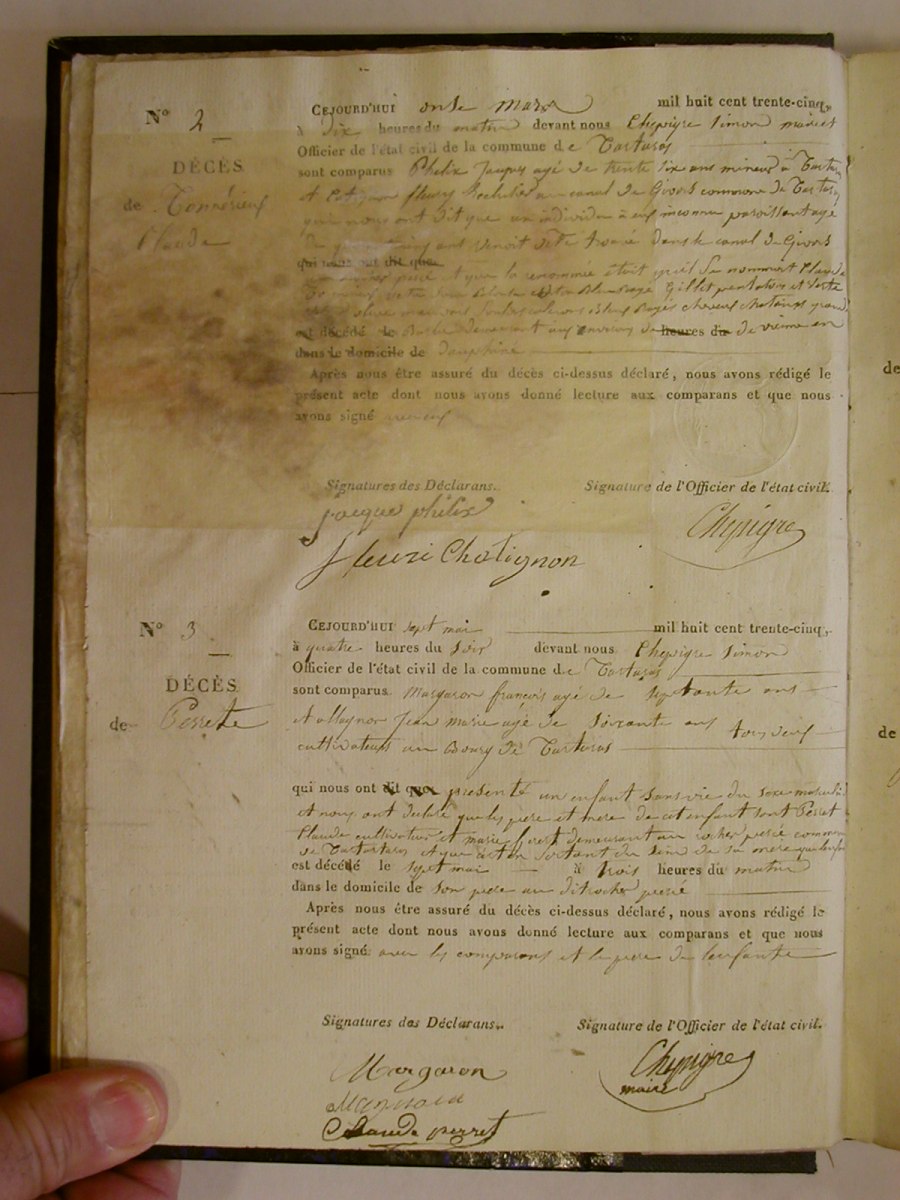 N° 2
DÉCÈS
de Tonnérieux
Claude
CEJOURD'HUI onse mars mil huit cent trente-cinq,
à dix heures du matin devant nous Chepigre Simon maire
Officier de l'état civil de la commune de Tartaras
sont comparus Phelix Jacques agé de trente six ans mineur à Tartaras
et Chatignon fleury au canal de Givors commune de Tartaras
qui nous ont dit que un individu à eux inconnu paroissant agé
de ans venoit dete trouvé dans le canal de Givors
qui nous ont dit que
percé et que la renommée étoit qu'il se nommoit Claude
Gillet pantalon et veste
cheveux chatains
est décédé le demeurant aux environs de heures du de vienne en
dans le domicile de dauphiné
Après nous être assuré du décès ci-dessus déclaré, nous avons rédigé le
présent acte dont nous avons donné lecture aux comparans et que nous
avons signé avec eux
Signatures des Déclarans. Signature de l'Officier de l'état civil.
jacque phelix
Chepigre
fleuri Chatignon
N° 3
DÉCÈS
de Perrete
CEJOURD'HUI sept mai mil huit cent trente-cinq,
à quatre heures du soir devant nous Chepigre Simon
Officier de l'état civil de la commune de Tartaras
sont comparus Margaron françois agé de septante ans
et Jean marie agé de soixante ans tous deux
cultivateurs au Bourg de Tartaras
qui nous ont dit que présenté un enfant sans vie du sexe masculin
et nous ont déclaré que les pere et mere de cet enfant sont Perret
Claude cultivateur et marie demeurant au rocher percé commune
de Tartaras et que c'est en sortant du sein de sa mere que lenfant
est décédé le sept mai à trois heures du matin
dans le domicile de son pere au dit rocher percé
Après nous être assuré du décès ci-dessus déclaré, nous avons rédigé le
présent acte dont nous avons donné lecture aux comparans et que nous
avons signé avec les comparans et le pere de lenfant
Signatures des Déclarans. Signature de l'Officier de l'état civil.
Margaron
Chepigre
maire
Claude perret
de
de